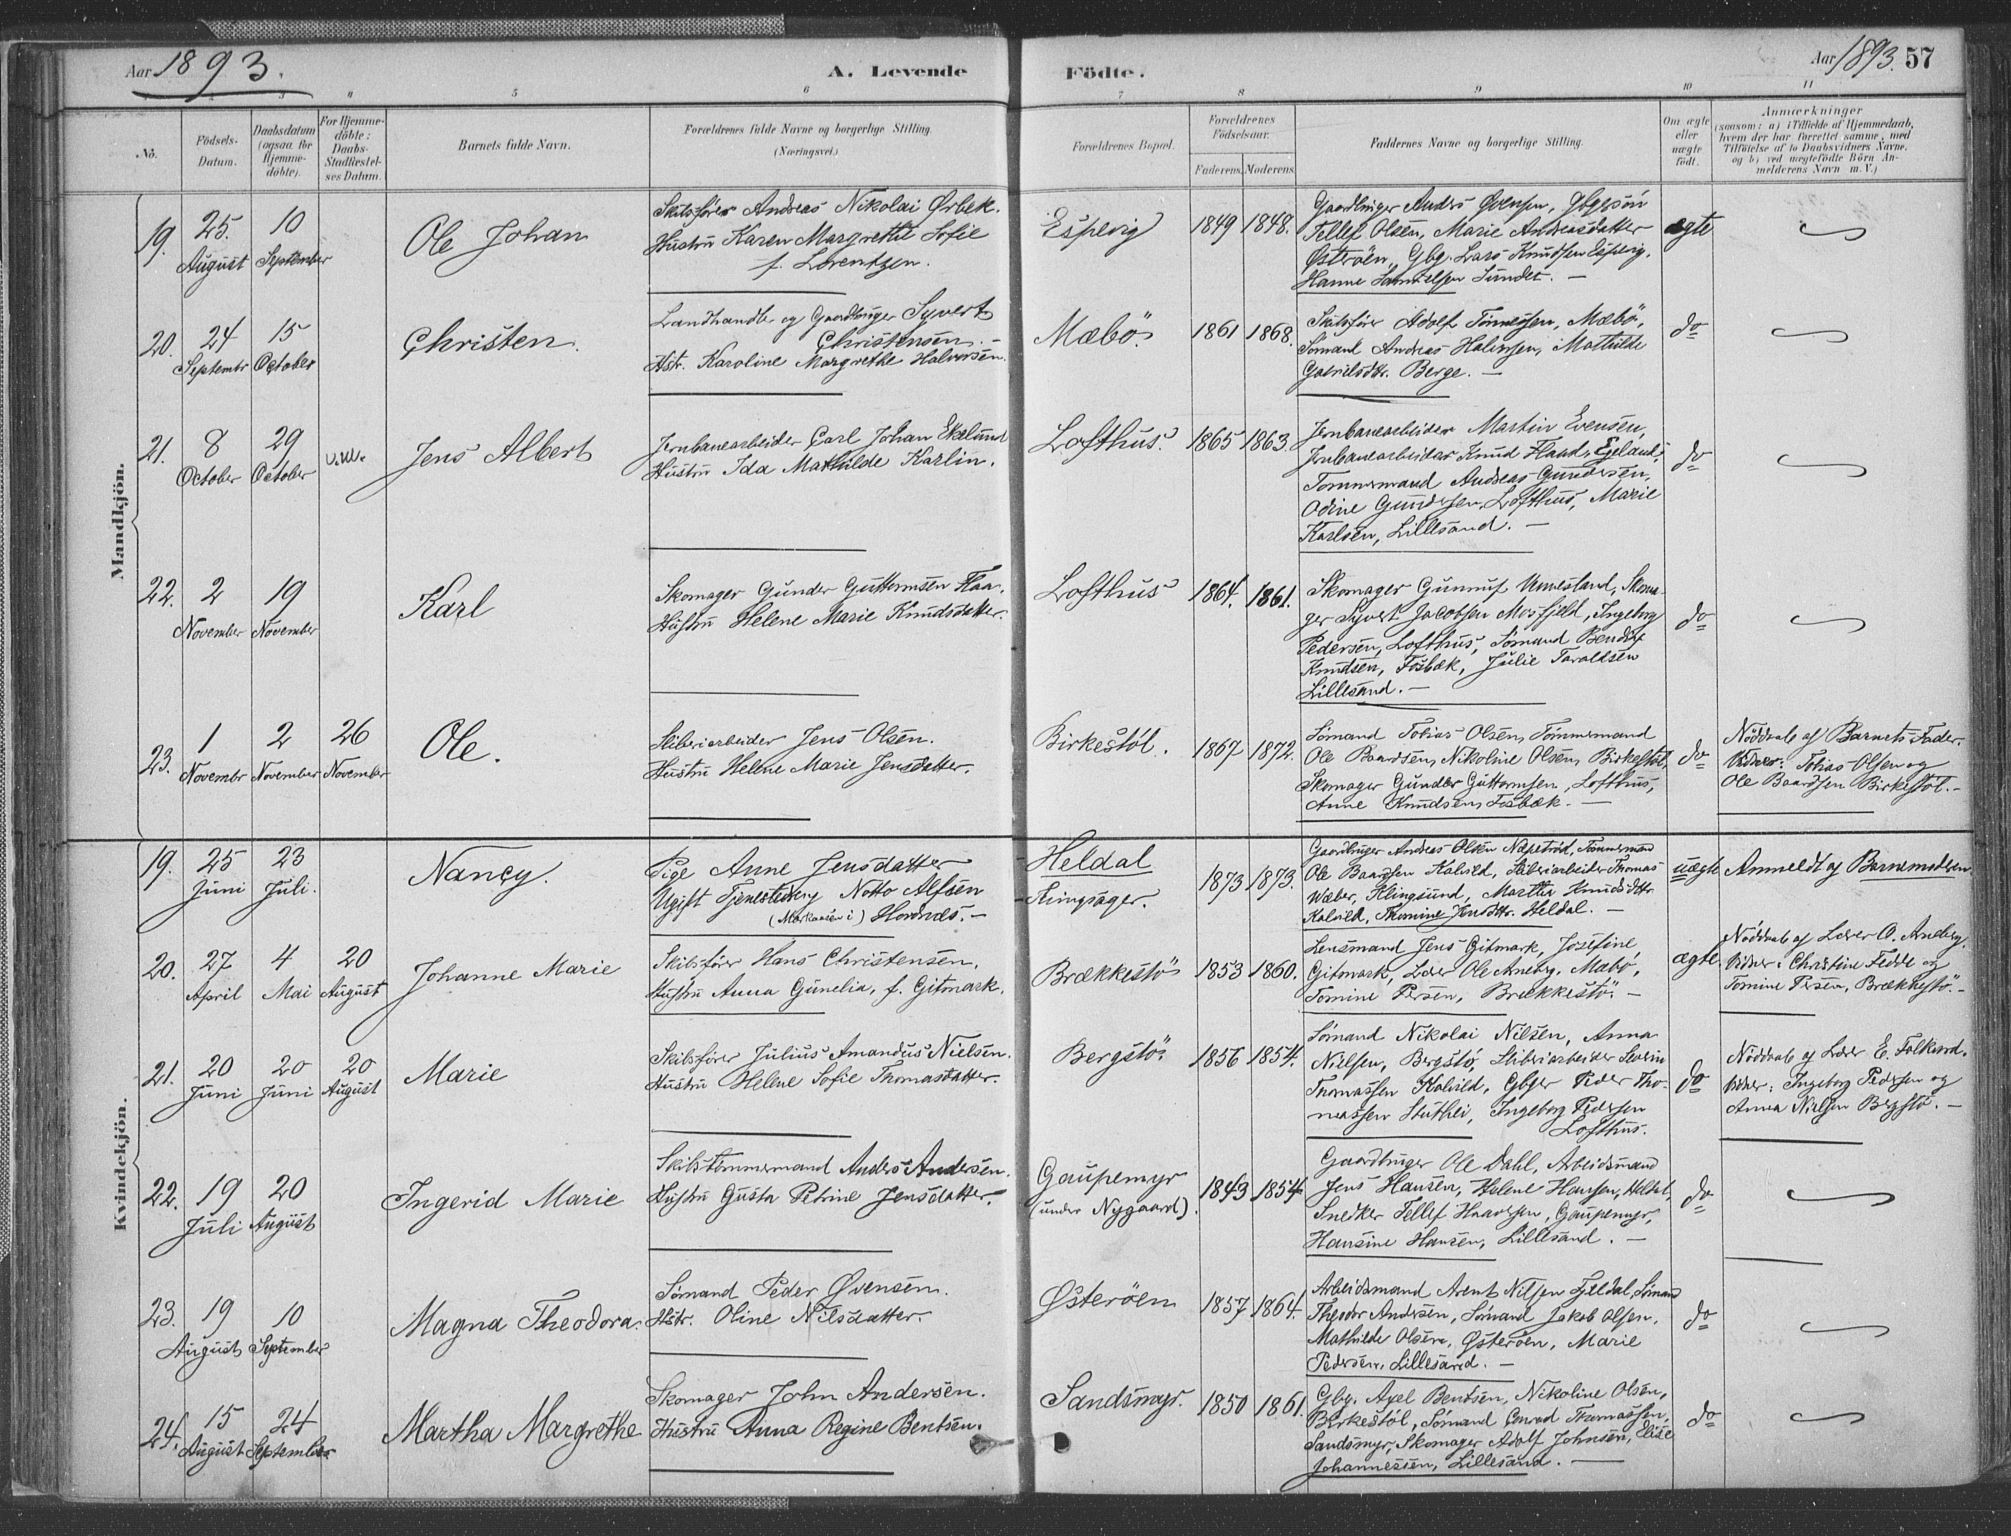 Aar 1893.
A. Levende Födte.
Aar 1893. 57
1 2 3 4 5 6 7 8 9 10 11
No.
Födsels-
Datum.
Daabsdatum
(ogsaa for
Hjemme-
döbte).
For Hjemme-
döbte:
Daabs-
Stadfæstel-
ses Datum.
Barnets fulde Navn.
Forældrenes fulde Navne og borgerlige Stilling.
(Næringsvei.)
Forældrenes Bopæl.
Forældrenes
Födselsaar.
Faderens. Moderens.
Faddernes Navne og borgerlige Stilling.
Om ægte
eller
uægte
födt.
Anmærkninger
(saasom: a) i Tilfælde af Hjemmedaab,
hvem der har forrettet samme, med
Tilföielse af to Daabsvidners Navne,
og b) ved uægtefödte Börn An-
melderens Navn m. V.)
Mandkjön.
19.
25.
August
10
September
Ole Johan
Skibsfører Andreas Nikolai Ørbek.
Hustru Karen Margrethe Sofie
f. Lorentzen.
Espevig
1849 1848.
Gaardbruger Anders Evensen,
Tellef Olsen, Marie Andreasdatter
Østerøen, Gbg. Lars Knudsen Espevig,
Hanne Samuelsen Sundet. —
ægte
20.
24
Septembr
15
October
Christen.
Landhandler og Gaardbruger Syvert
Christensen. —
Hstr. Karoline Margrethe Halvorsen.
Mæbö.
1861 1868.
Skibsfører Adolf Tönnessen, Mæbö,
Sømand Andreas Halvorsen, Mathilde
Gabrielsdtr. Berge. —
do
21.
8
October
29
October
Jens Albert
Jernbanearbeider Carl Johan Ekelund
Hustru Ida Mathilde Karlin.
Lofthus.
1865 1863.
Jernbanearbeider Martin Evensen,
Jernbanearbeider Knud Fland, Egeland,
Tømmermand Andreas Gundersen,
Odine Gundersen, Lofthus, Marie
Karlsen, Lillesand. —
do
22.
2
November
19
November
Karl
Skomager Gunder Guttormsen Flaa.
Hustru Helene Marie Knudsdatter.
Lofthus
1864. 1861.
Skomager Gunnuf Unnesland, Skoma-
ger Syvert Jacobsen Mosfjeld, Ingeborg
Pedersen, Lofthus, Sømand Bendix
Knudsen, Fosbæk, Julie Taraldsen
Lillesand. —
do
23.
1
Novembr
2
November
26
November
Ole.
Sliberiarbeider Jens Olsen.
Hustru Helene Marie Jensdatter.
Birkestöl.
1867 1872.
Sømand Tobias Olsen, Tømmermand
Ole Baardsen, Nikoline Olsen, Birkestöl,
Skomager Gunder Guttormsen, Lofthus,
Anne Knudsen, Fosbæk. —
do
Nöddaab af Barnets Fader.
Vidner: Tobias Olsen og
Ole Baardsen Birkestöl. —
Kvindekjön.
19.
25
Juni
23
Juli.
Nancy.
Pige Anne Jensdatter
Ugift Tjenestedreng Notto Alfsen
Hovdnes. —
Heldal
1873 1873.
Gaardbruger Andreas Olsen Næpetrød, Tømmermand
Ole Baardsen Kalvild, Sliberiarbeider Thomas
Wæber, Klingsund, Marthe Knudsdttr.
Kalvild, Thomine Jensdttr. Heldal. —
uægte
Anmeldt af Barnemoderen
20.
27
April
4
Mai
20
August
Johanne Marie
Skibsfører Hans Christensen.
Hustru Anna Gunelia, f. Gitmark.
Brækkestö
1853 1860.
Lensmand Jens Gitmark, Josefine
Gitmark, Lærer Ole Aneberg, Mæbö,
Tomine Persen, Brækkestö. —
ægte
Nöddaab af Lærer O. Aneberg.
Vidner: Christine Fedde og
Tomine Persen, Brækkestö. —
21.
20
Juni
20
Juni
20
August
Marie
Skibsfører Julius Amandus Nielsen.
Hustru Helene Sofie Thomasdatter.
Bergstö
1856 1854.
Sømand Nikolai Nilsen, Anna
Nielsen, Bergstö, Sliberiarbeider Severin
Thomassen Kalvild, Gbgr Peder Tho-
massen Stuthei, Ingeborg Pedersen
Lofthus.
do
Nöddaab af Lærer E. Falkind.
Vidner: Ingeborg Pedersen og
Anna Nielsen Bergstö. —
22.
19
Juli
20
August
Ingerid Marie
Skibstömmermand Anders Andersen.
Hustru Gusta Petrine Jensdatter.
Gaupemyr
(under Nygaard).
1843 1854
Gaardbruger Ole Dahl, Arbeidsmand
Jens Hansen, Helene Hansen, Heldal,
Snedker Tellef Haavorsen, Gaupemyr,
Hansine Hansen, Lillesand. —
do
23.
19
August
10
September
Magna Theodora.
Sømand Peder Øvensen.
Hstr. Oline Nilsdatter.
Østeröen
1857 1864.
Arbeidsmand Arent Nilsen Fjeldal, Sømand
Theodor Andersen, Sømand Jakob Olsen,
Mathilde Olsen, Østeröen, Marie
Pedersen, Lillesand. —
do
24.
15
August
24
September
Martha Margrethe
Skomager John Andersen.
Hustru Anna Regine Bentsen.
Sandsmyr.
1850 1861.
Gbg. Axel Bentsen, Nikoline Olsen,
Birkestöl, Sømand Conrad Thomassen,
Sandsmyr, Skomager Adolf Johnsen, Elise
Johannessen, Lillesand. —
do